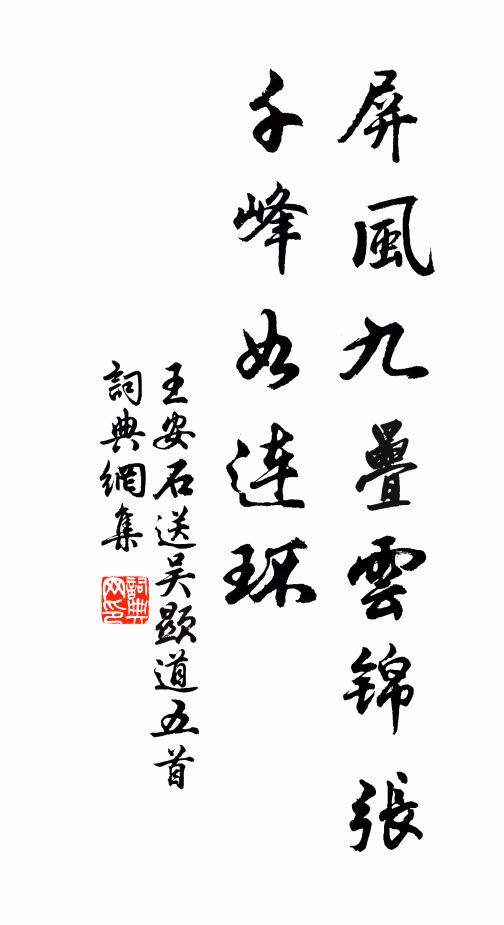 屏風九疊雲錦張
千峰如连环
王安石送吴顕道五首
詞典網集
詞典网印